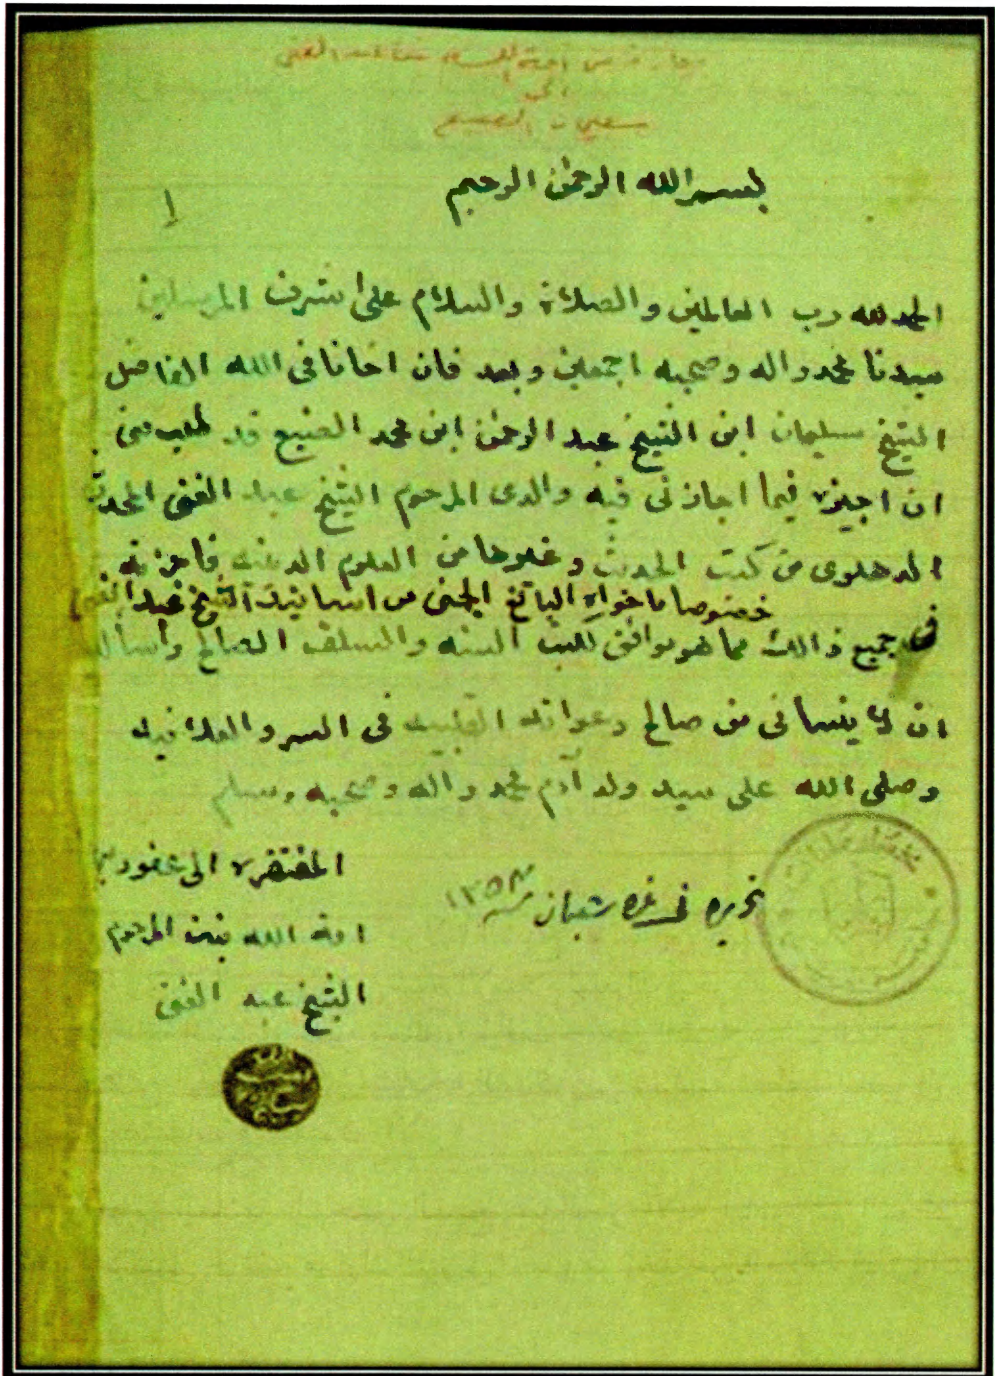 اجازة من امة الله بنت عبد الغني
الى
سليمان الصنيع
بسم الله الرحمن الرحيم
١
الحمد لله رب العالمين والصلاة والسلام على اشرف المرسلين
سيدنا محمد واله وصحبه اجمعين وبعد فان اخانا في الله الفاضل
الشيخ سليمان ابن الشيخ عبد الرحمن ابن محمد الصنيع قد طلب مني
ان اجيزه فيما اجازني فيه والدي المرحوم الشيخ عبد الغني المحدث
الدهلوي من كتب الحديث وغيرها من العلوم الدينيه فاجزته
خصوصا ما حواه اليانع الجني من اسانيد الشيخ عبد الغني
في جميع ذالك مما هو موافق للكتب السنه والسلف الصالح واسأله
ان لا ينساني من صالح دعواته القلبيه في السر والعلانيه
وصلى الله على سيد ولد آدم محمد واله وصحبه وسلم
المفتقره الى عفو ربها
تحريره في غره شعبان سنة ١٣٥٣
امة الله بنت المرحوم
الشيخ عبد الغني